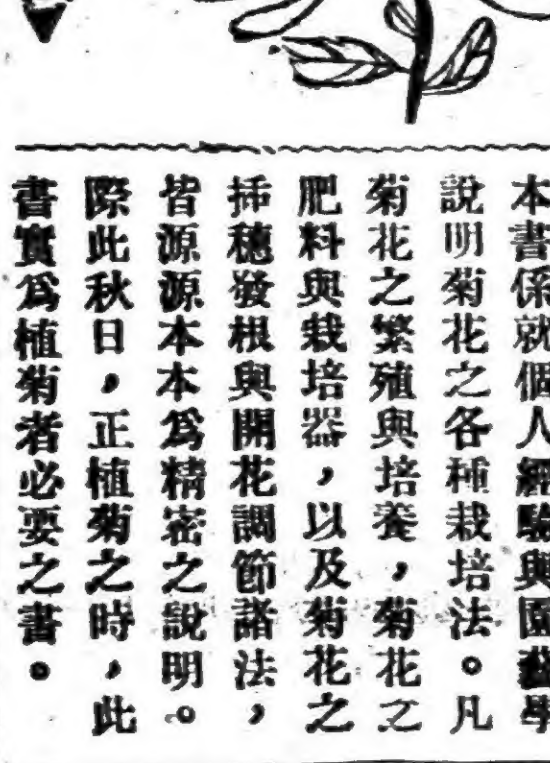 本書係就個人經驗與園藝學
說明菊花之各種栽培法。凡
菊花之繁殖與培養，菊花之
肥料與栽培器，以及菊花之
插穗發根與開花調節諸法，
皆源源本本爲精密之說明。
際此秋日，正植菊之時，此
書實爲植菊者必要之書。